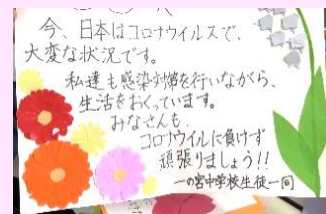 今、日本はコロナウイルスで、
大変な状況です。
私達も感染対策を行いながら、
生活をおくっています。
みなさんも、
コロナウイルに負けず
頑張りましょう!!
一の宮中学校生徒一同